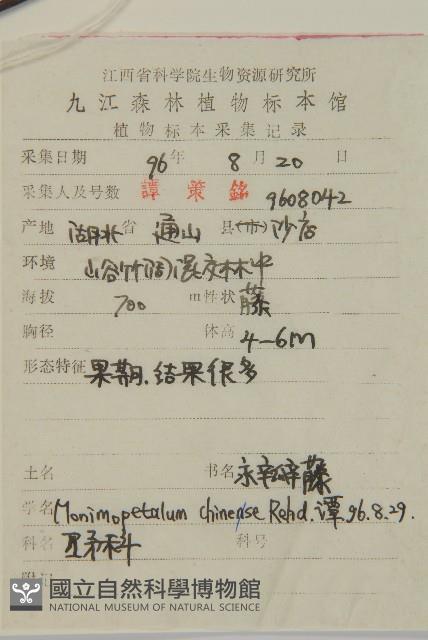 江西省科学院生物资源研究所
九江森林植物标本馆
植物标本采集记录
采集日期 96年 8月20日
采集人及号数 譚策銘 9608042
产地 湖北省 通山 县(市) 沙店
环境 山谷竹阔混交林中
海拔 700 m性状 藤
胸径 体高 4-6m
形态特征 果期.结果很多
土名 书名 永瓣藤
学名 Monimopetalum chinense Rehd. 谭 96.8.29.
科名 卫矛科 科号
附记
國立自然科學博物館
NATIONAL MUSEUM OF NATURAL SCIENCE